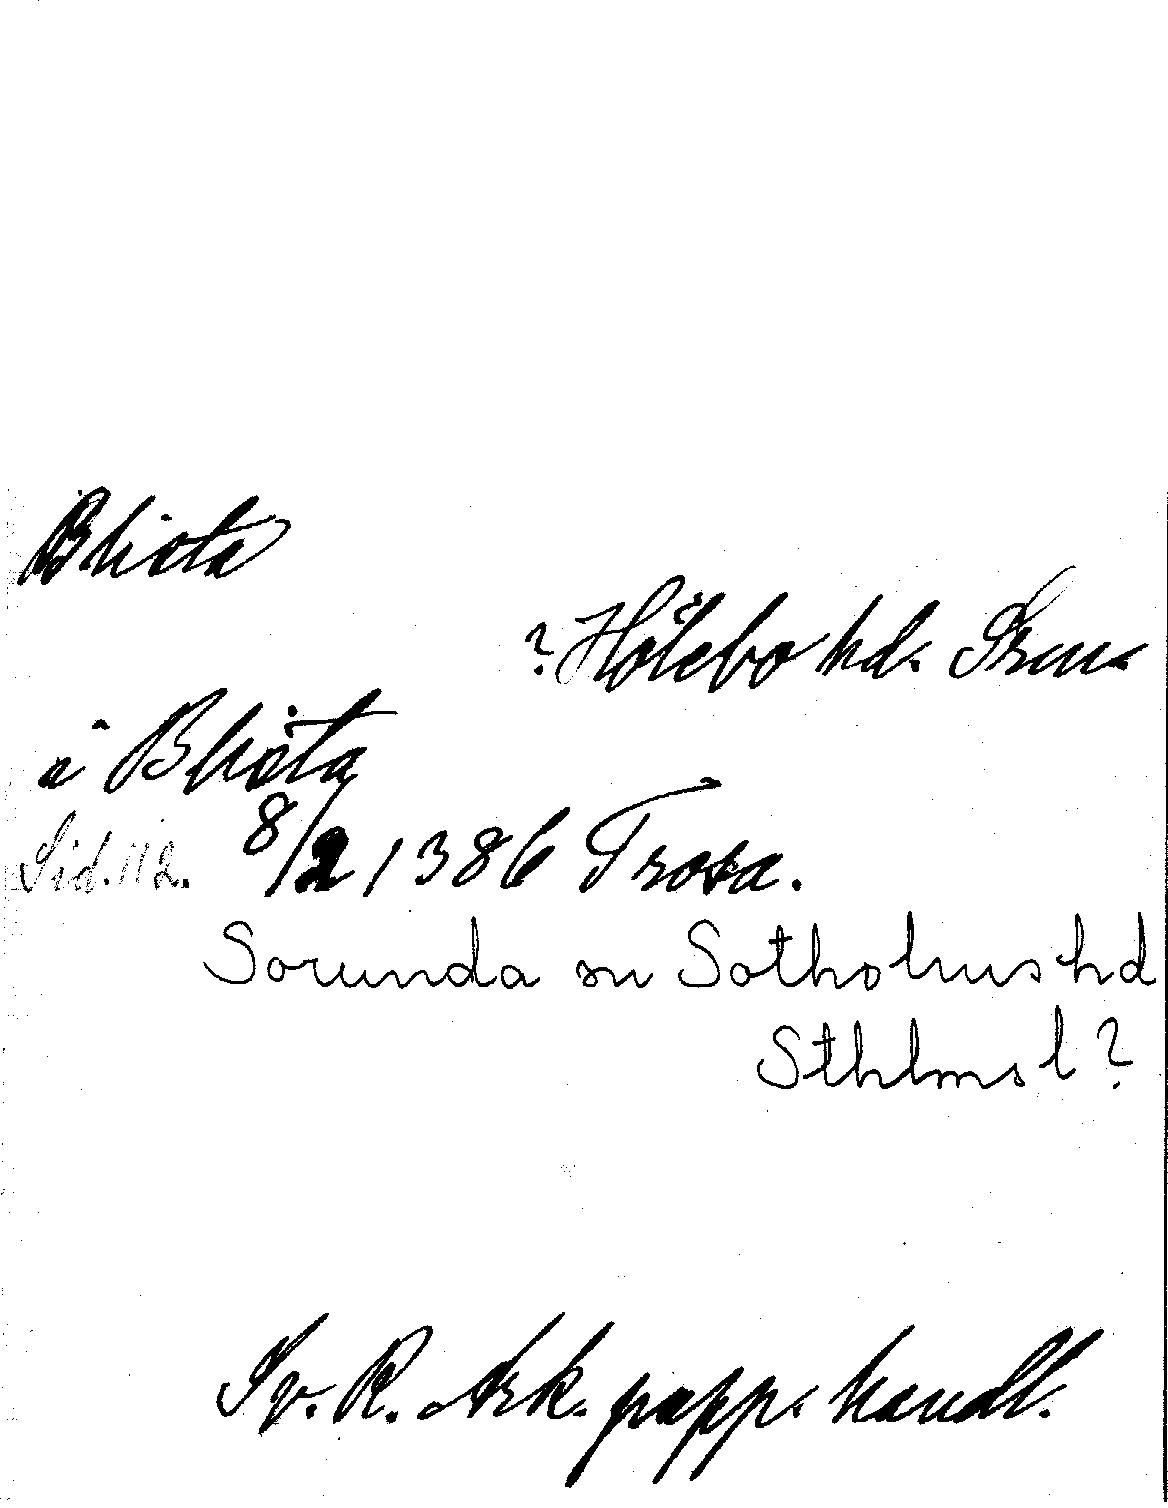 Blista
? Hölebo hd. Srm.
å Blista
Sid. 112. 8/2 1386 Trosa.
Sorunda sn Sotholms hd
Sthlms l ?
Sv. R. Ark. papp. handl.